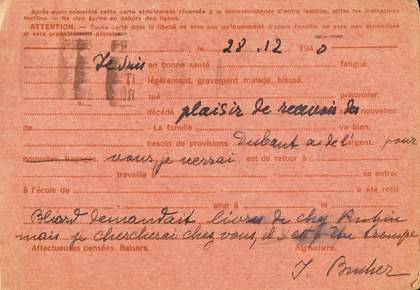 Après avoir complété cette carte strictement réservée à la correspondance d'ordre familial, biffez les indications
inutiles. — Ne rien écrire en dehors des lignes.
ATTENTION. — Toute carte dont le libellé ne sera pas uniquement d'ordre familial ne sera pas acheminée
et sera probablement détruite.
le 28.12 1940
Je suis en bonne santé fatigué.
légèrement, gravement malade, blessé.
tué prisonnier.
décédé plaisir de recevoir des nouvelles
La famille va bien.
besoin de provisions Dubant a de l'argent. pour
nouvelles, bagages vous, je verrai est de retour à
travaille à va entrer
à l'école de a été reçu
aller à le
Bliard demandait livres de chez Rubin
mais je chercherai chez vous, il s'est trompé
Affectueuses pensées. Baisers. Signature.